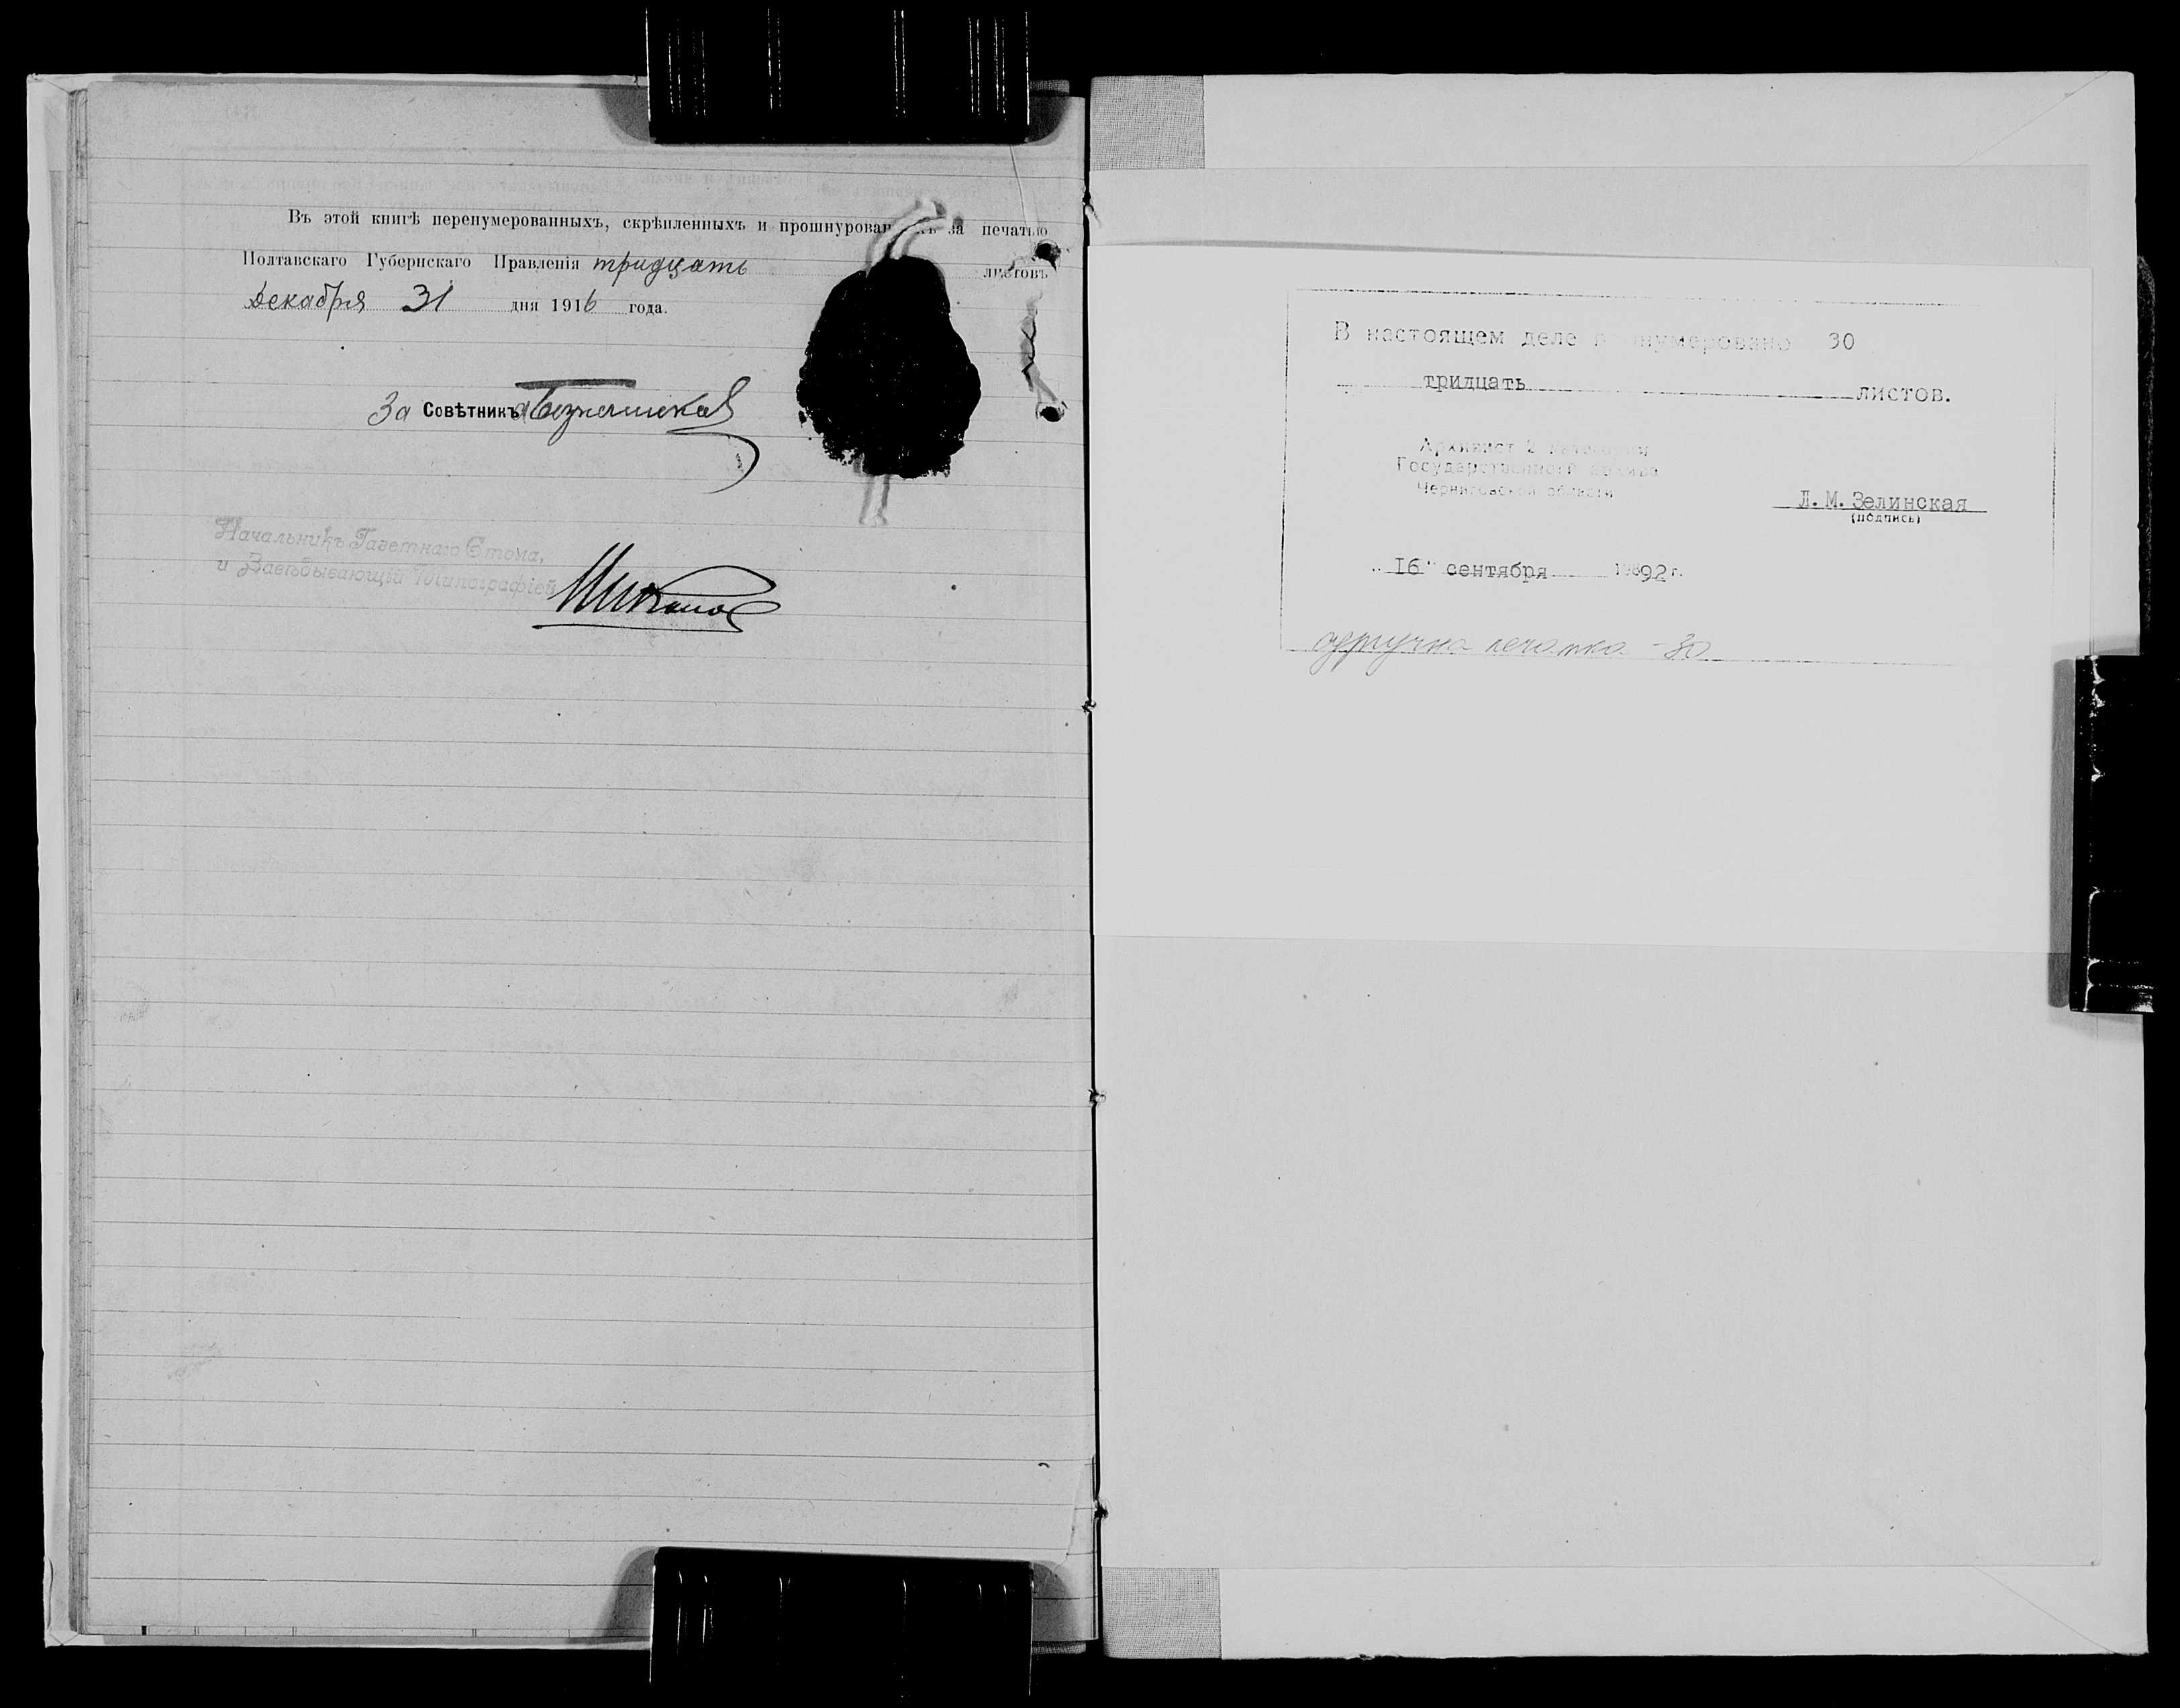 Въ этой книгѣ перенумерованныхъ, скрѣпленныхъ и за печатью
Полтавскаго Губернскаго Правленія тридцать листовъ
Декабря 31 дня 1916 года.
За Совѣтника
Начальникъ Газетнаго Стола,
и Завѣдывающій Типографіей
В настоящем деле пронумеровано 30
тридцать листов.
Архивист 2 категории
Государственного архива
Черниговской области
Л.М.Зелинская
(подпись)
"16" сентября 1992 г.
сургучна печатка - 30